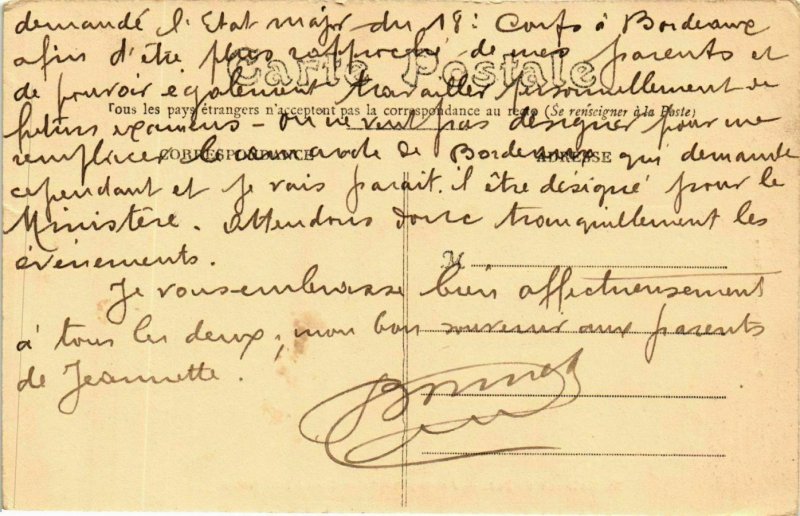 demandé l'Etat major du 18e Corps à Bordeaux
afin d'être plus rapproché de mes parents et
Carte Postale
de pouvoir également travailler personnellement de
Tous les pays étrangers n'acceptent pas la correspondance au recto (Se renseigner à la Poste)
futurs examens - on ne veut pas désigner pour me
remplacer de Bordeaux qui demande
CORRESPONDANCE ADRESSE
cependant et je vais parait-il être désigné pour le
Ministère. Attendons donc tranquillement les
évènements.
M
Je vous embrasse bien affectueusement
à tous les deux ; mon bon souvenir aux parents
de Jeannette.